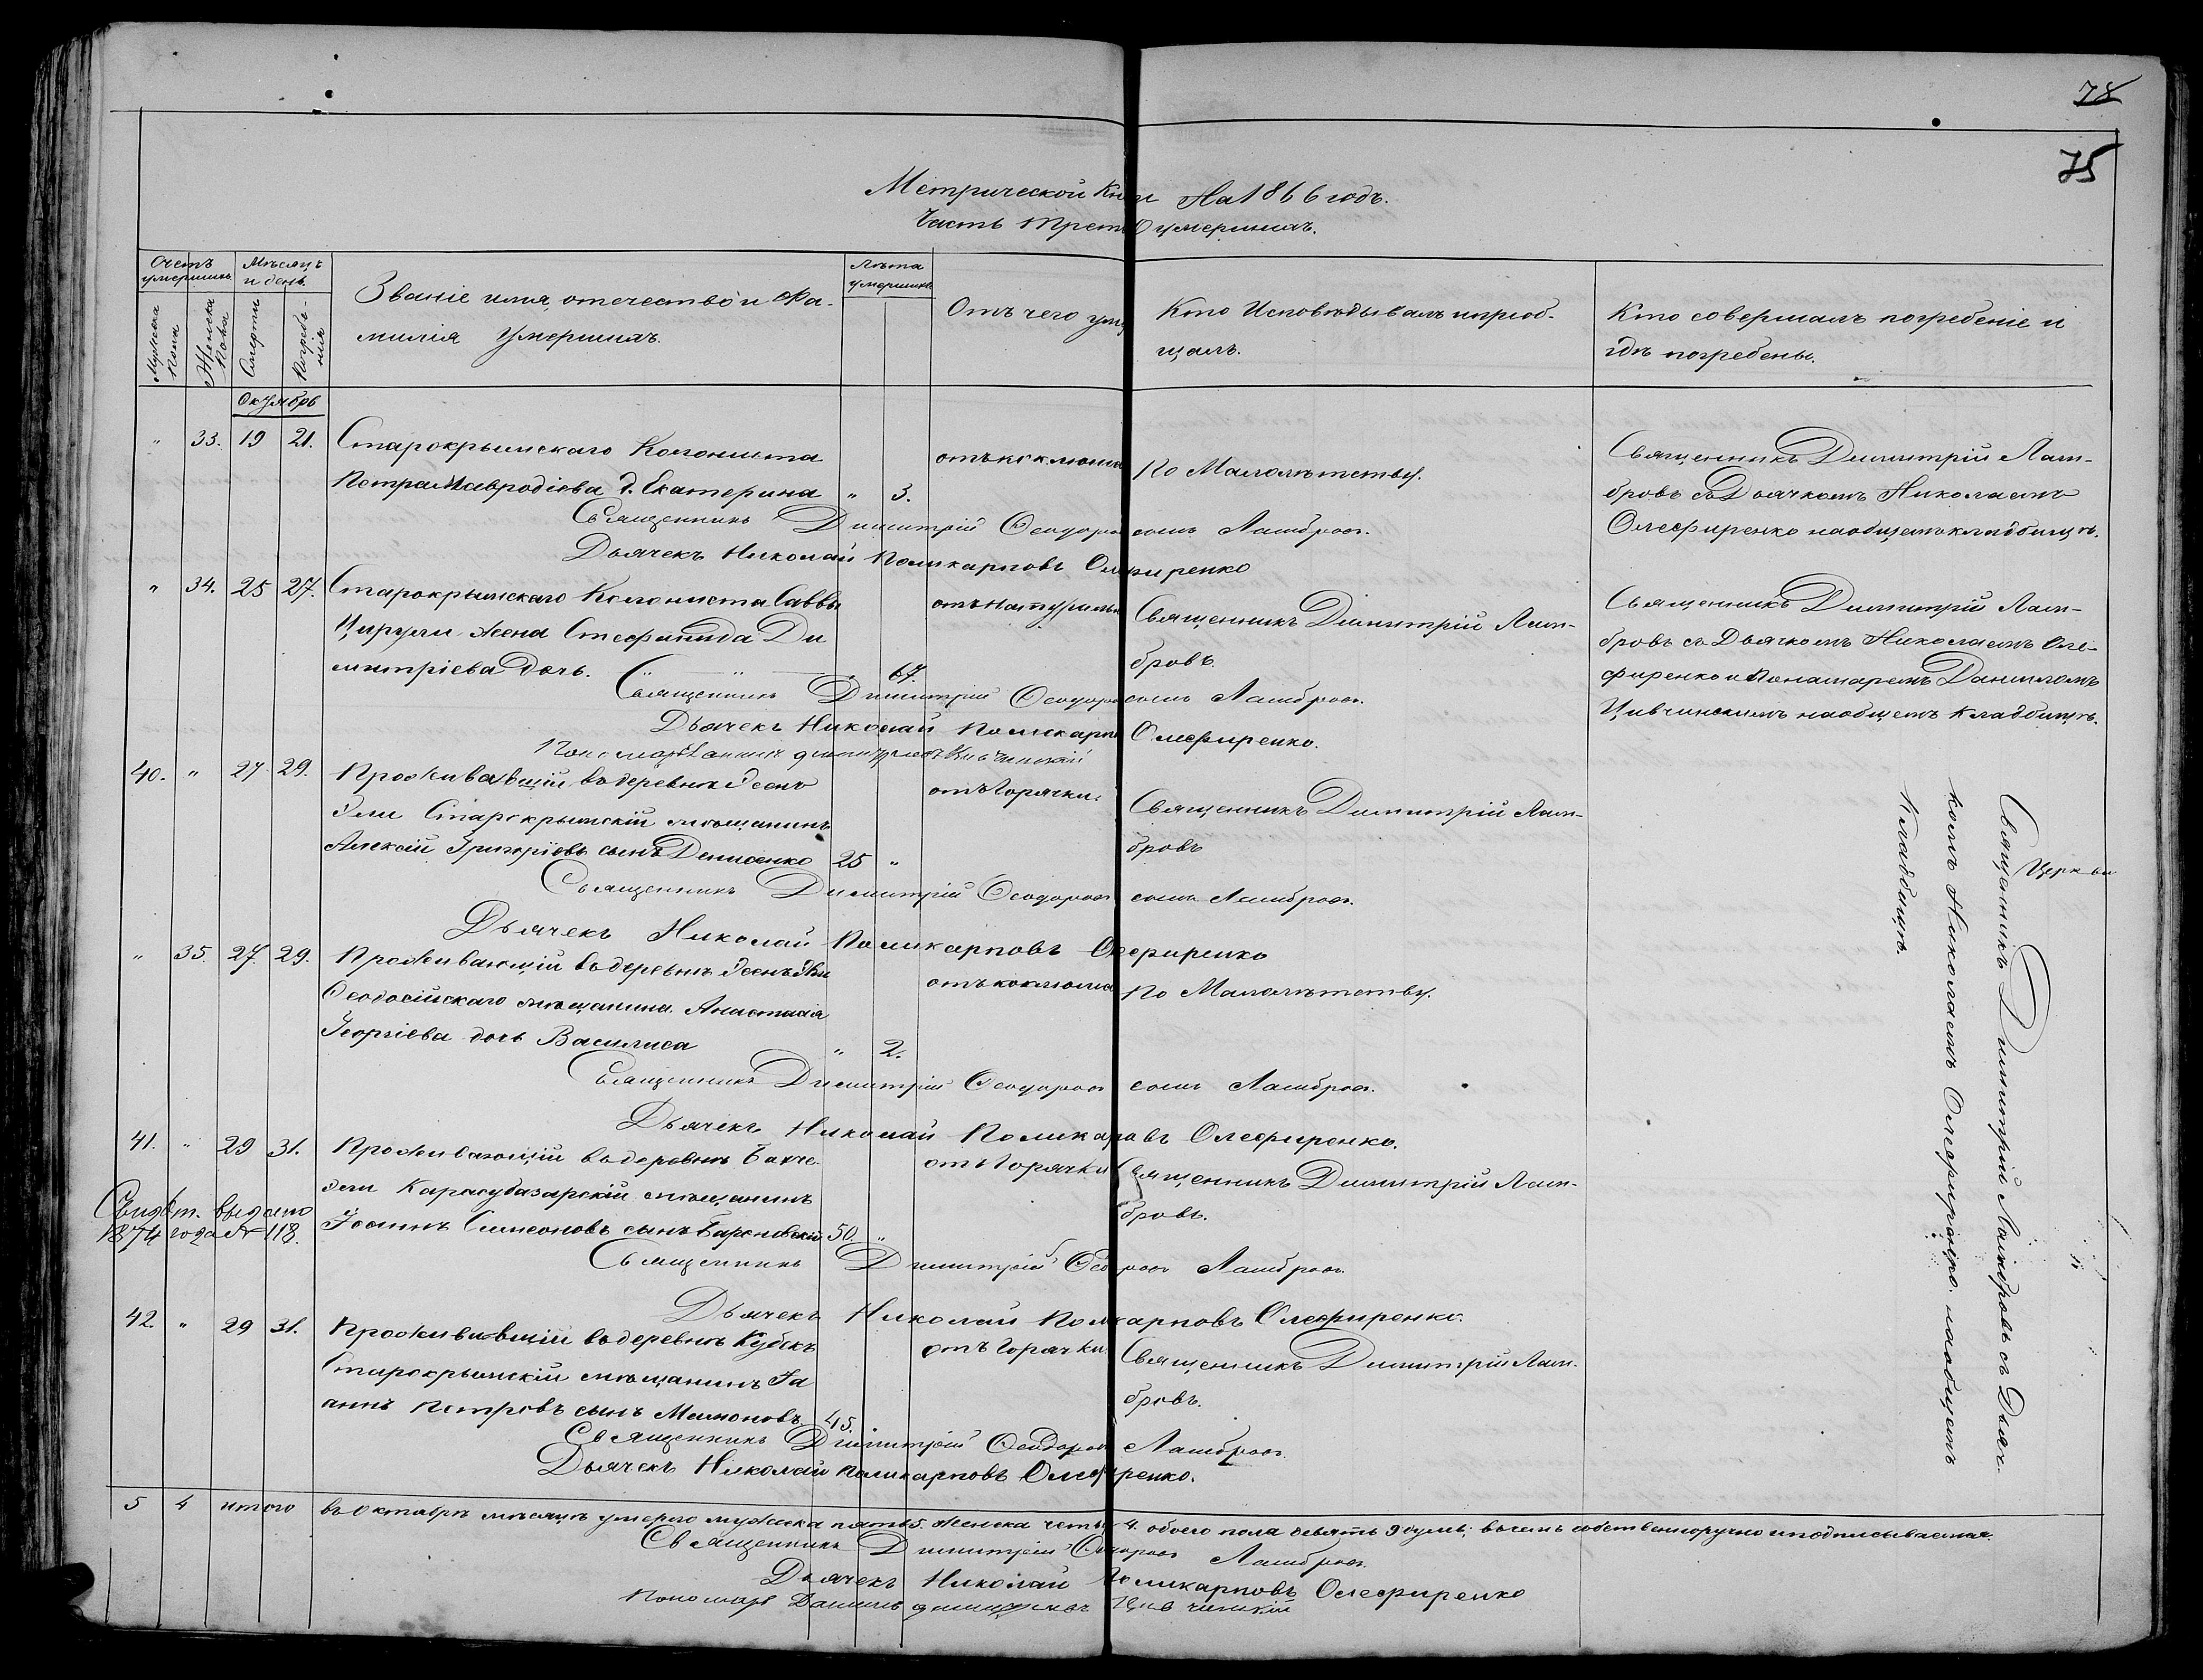 78
75
Метрической Кни На 1866 годъ.
Часть трет О умершихъ.
Счетъ умершихъ
Мѣсяцъ и день.
Мужеска пола
Женска пола
Смерти
Погребе-
нія
Званіе имя, отечество и Фа-
милія Умершихъ.
Лѣта умершихъ
Отъ чего уме
Кто Исповѣдывалъ и пріоб-
щалъ.
Кто совершалъ погребеніе и
гдѣ погребены.
Октябрь
" 33. 19 21. Старокрымскаго Колониста
Петра Мавродіева д. Екатерина " 3.
отъ коклюша
По Малолѣтству.
Священникъ Димитрій Лам-
бровъ съ Дьячкомъ Николаемъ
Олефиренко на общемъ кладбищѣ.
Священникъ Димитрій Ѳеодоро сынъ Ламбровъ.
Дьячекъ Николай Поликарповъ Олефиренко
" 34. 25 27. Старокрымскаго Колониста Саввы
Цирули жена Стефанида Ди
митріева дочь. " 67.
отъ натуральн
Священникъ Димитрій Лам-
бровъ
Священникъ Димитрій Лам-
бровъ съ Дьячкомъ Николаемъ Оле-
фиренко и Понамаремъ Даниломъ
Цивчинскимъ на общемъ кладбищѣ.
Священникъ Димитрій Ѳеодоро сынъ Ламбровъ.
Дьячекъ Николай Поликарпо Олефиренко.
40. " 27 29. Проживавшій въ деревнѣ Эсенъ
Эли Старокрымскій мѣщанинъ
Алексій Григоріевъ сынъ Денисенко 25 "
отъ Горячки.
Священникъ Димитрій Лам-
бровъ
Священникъ Димитрій Ламбровъ съ Дьяч-
комъ Николаемъ Олефиренко. на общемъ
Кладбищѣ.
Церкви
Священникъ Димитрій Ѳеодоровъ сынъ Ламбровъ.
Дьячекъ Николай Поликарповъ Олефиренко
" 35. 27. 29. Проживающій въ деревнѣ Эсенъ Эли
Ѳеодосійскаго мѣщанина Анастасія
Георгіева дочь Василиса " 2.
отъ коклюша
По Малолѣтству.
Священникъ Димитрій Ѳеодоровъ сынъ Ламбровъ.
Дьячекъ Николай Поликаровъ Олефиренко.
41. " 29 31. Проживающій въ деревнѣ Бахче-
Эли Карасубазарскій мѣщанинъ
Іоаннъ Симеоновъ сынъ 50. "
Свидѣт. выдано
1874 года № 118.
отъ Горячки
Священникъ Димитрій Лам-
бровъ.
Священникъ Димитрій Ѳеодоровъ Ламбровъ
Дьячекъ Николай Поликарповъ Олефиренко.
42. " 29 31. Проживавшій въ деревнѣ
Старокрымскій мѣщанинъ Іо
аннъ Петровъ сынъ Мамоновъ 45.
отъ Горячки
Священникъ Димитрій Лам-
бровъ.
Священникъ Димитрій Ѳеодоров Ламбровъ
Дьячекъ Николай Поликарповъ Олефиренко.
5 4 итого въ Октябрѣ мѣсяцѣ умерло мужеска пять 5. женска четы 4. обоего пола девять 9 душъ; въ чемъ собственноручно и подписываемся.
Священникъ Димитрій Ѳеодоровъ Ламбровъ.
Дьячекъ Николай Поликарповъ Олефиренко
Пономарь Данилъ Цивчинскій